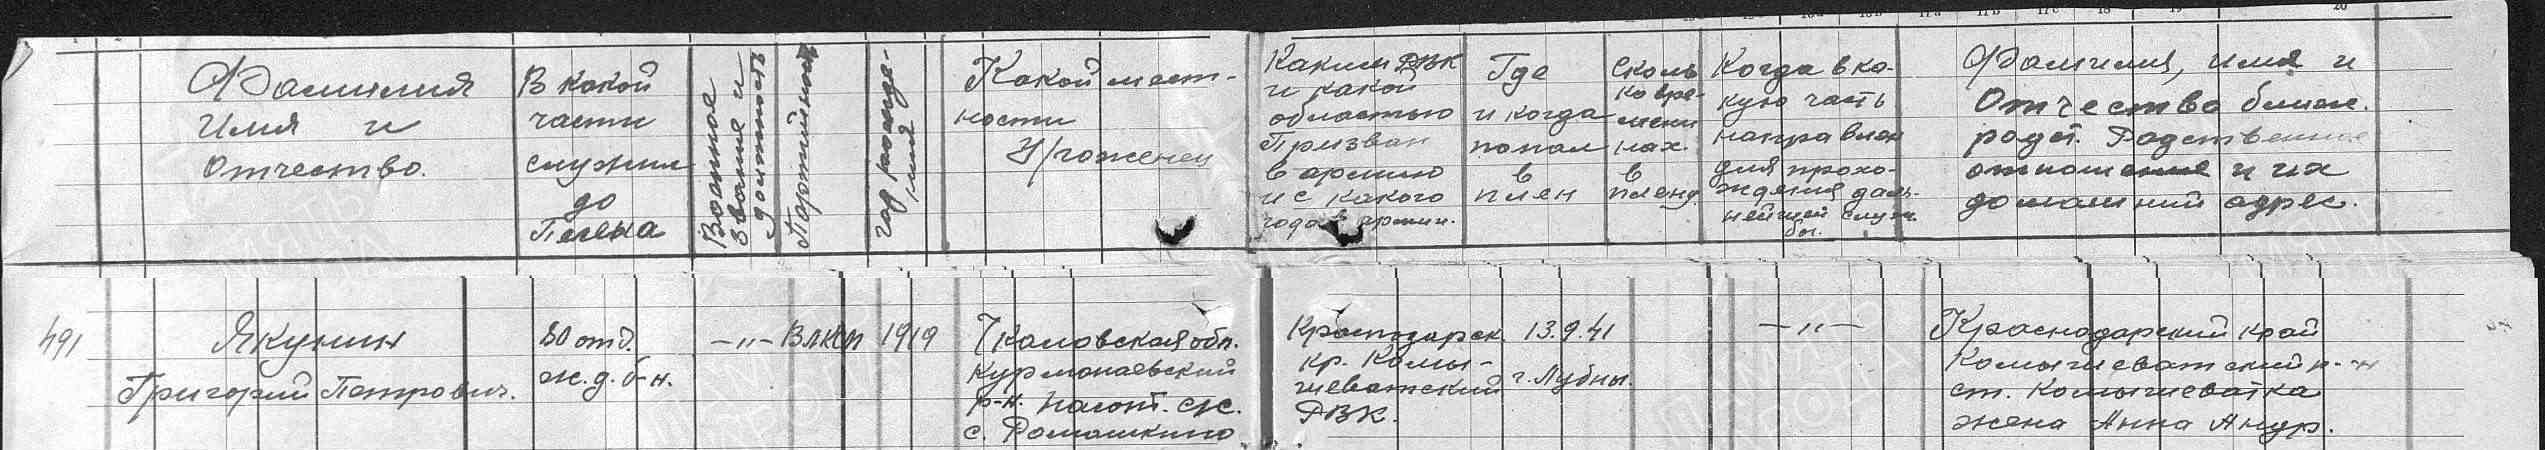 Фамилия
Имя и
Отчество.
В какой
части
служил
до
Плена
Воинское
звание и
должность
Партийность
год рожде-
ния
Какой мест-
ности
Уроженец
Каким РВК
и какой
областью
Призван
в армию
и с какого
года в армии.
Где
и когда
попал
в
плен
Сколь
ко вре-
мени
нах.
в
плену
Когда в ка-
кую часть
направлен
для прохо-
ждения даль-
нейшей служ.
бы.
Фамилия, имя и
Отчество ближ.
родст. Родственное
отношение и их
домашний адрес.
491
Якунин
Григорий Петрович.
80 отд.
ж.д. б-н.
—„—
ВЛКСМ
1919
Чкаловская обл.
Курманаевский
р-н.
с. Ромашкино
Краснодарск.
кр. Камы-
шеватский
РВК.
13.9.41
г. Лубны.
—„—
Краснодарский край
Камышеватский р-н
ст. Камышеватка
жена Анна Андр.